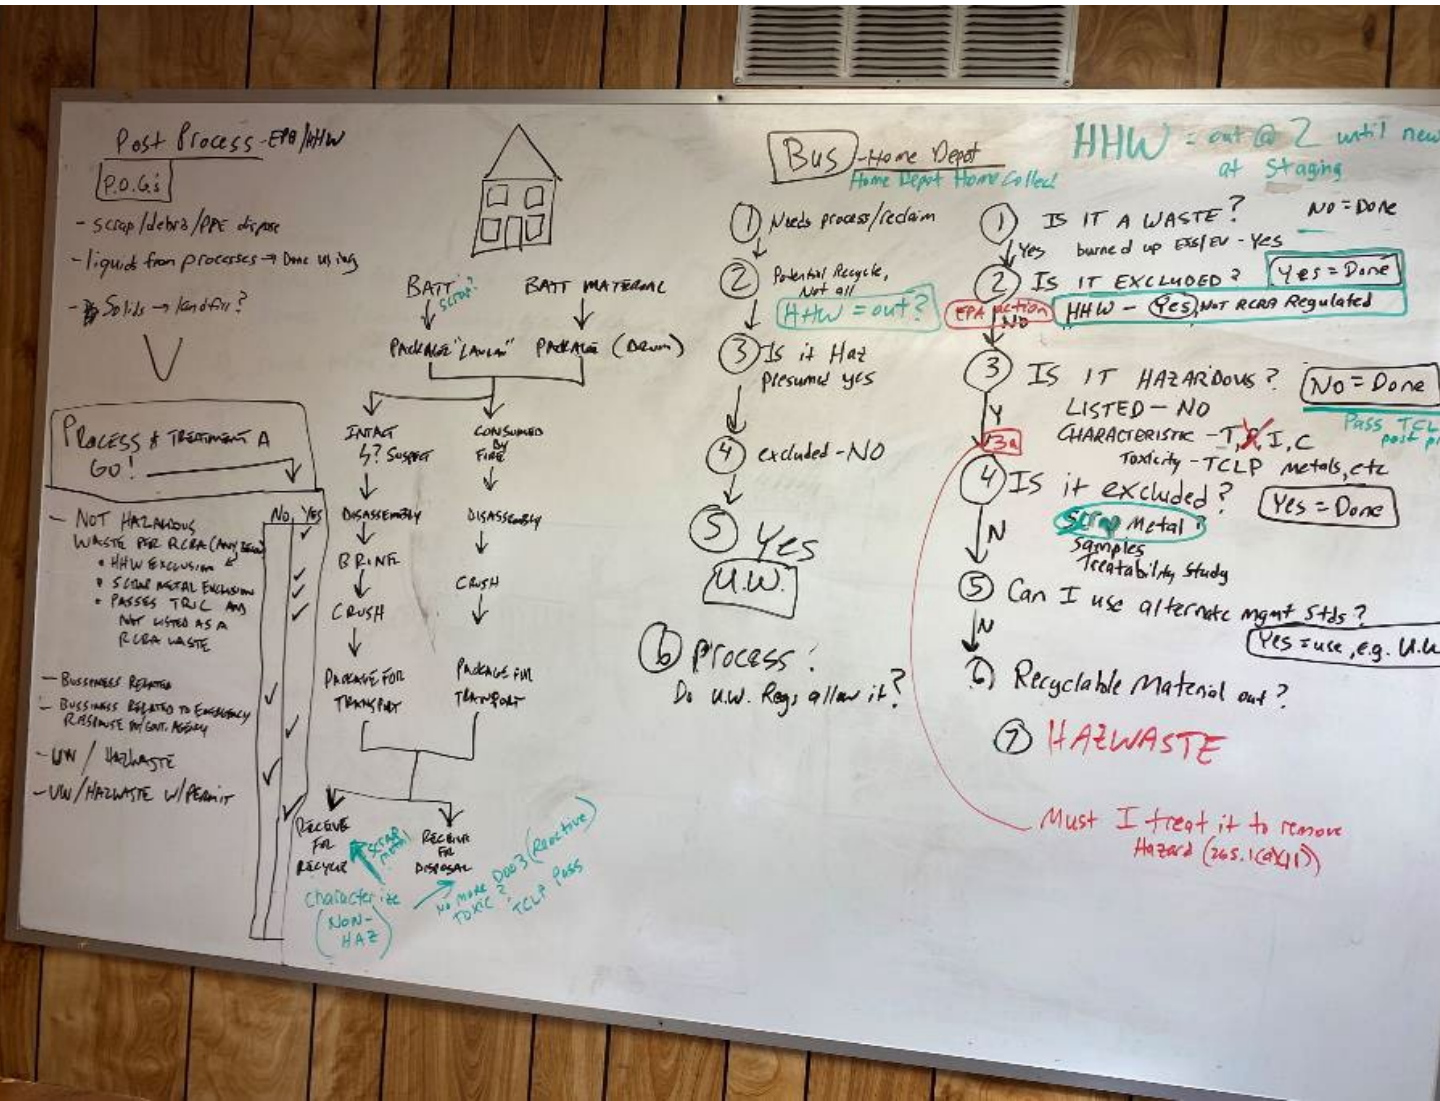 Post Process - EPA/HHW
P.O.G.'s
- scrap/debra/PPE dispose
- liquid from processes → Done using
- Solids → landfill?
PROCESS & TREATMENT A
GO!
No Yes
- NOT HAZARDOUS
WASTE PER RCRA (ANY
• HHW EXCLUSION
• SCRAP METAL EXCLUSION
• PASSES AND
NOT LISTED AS A
RCRA WASTE
- BUSSINESS RELATED
- BUSSINESS RELATED TO EMERGENCY
RESPONSE BY GOVT. AGENCY
- UW / HAZWASTE
- UW/HAZWASTE W/PERMIT
BATT
SCRAP?
BATT MATERIAL
PACKAGE
PACKAGE (DRUM)
INTACT
? SUSPECT
DISASSEMBLY
BRINE
CRUSH
PACKAGE FOR
TRANSPORT
CONSUMED
BY
FIRE
DISASSEMBLY
CRUSH
PACKAGE FOR
TRANSPORT
RECEIVE
FOR
RECYCLE
SCRAP
METAL
RECEIVE
FOR
DISPOSAL
Characterize
(NON-
HAZ)
NO MORE D003 (Reactive)
TOXIC?
TCLP Pass
Bus - Home Depot
Home Depot Home Collect
① Needs process/reclaim
② Potential Recycle,
Not all
HHW = out?
③ Is it Haz
presumed yes
④ excluded - NO
⑤ Yes
U.W.
⑥ Process?
Do U.W. Regs allow it?
HHW = out @ 2 until new
at Staging
① IS IT A WASTE? NO = Done
Yes burned up ESS/EV - Yes
② IS IT EXCLUDED? Yes = Done
EPA action
NO
HHW - Yes, NOT RCRA Regulated
③ IS IT HAZARDOUS? No = Done
LISTED - NO
Pass TCLP
post
Y
3a
CHARACTERISTIC - T, R, I, C
Toxicity - TCLP metals, etc
④ IS it excluded? Yes = Done
Scrap Metal?
Samples
Treatability Study
N
⑤ Can I use alternate mgmt Stds?
N
Yes = use, e.g. U.W
⑥ Recyclable Material out?
⑦ HAZWASTE
Must I treat it to remove
Hazard (265.1(c)(11))